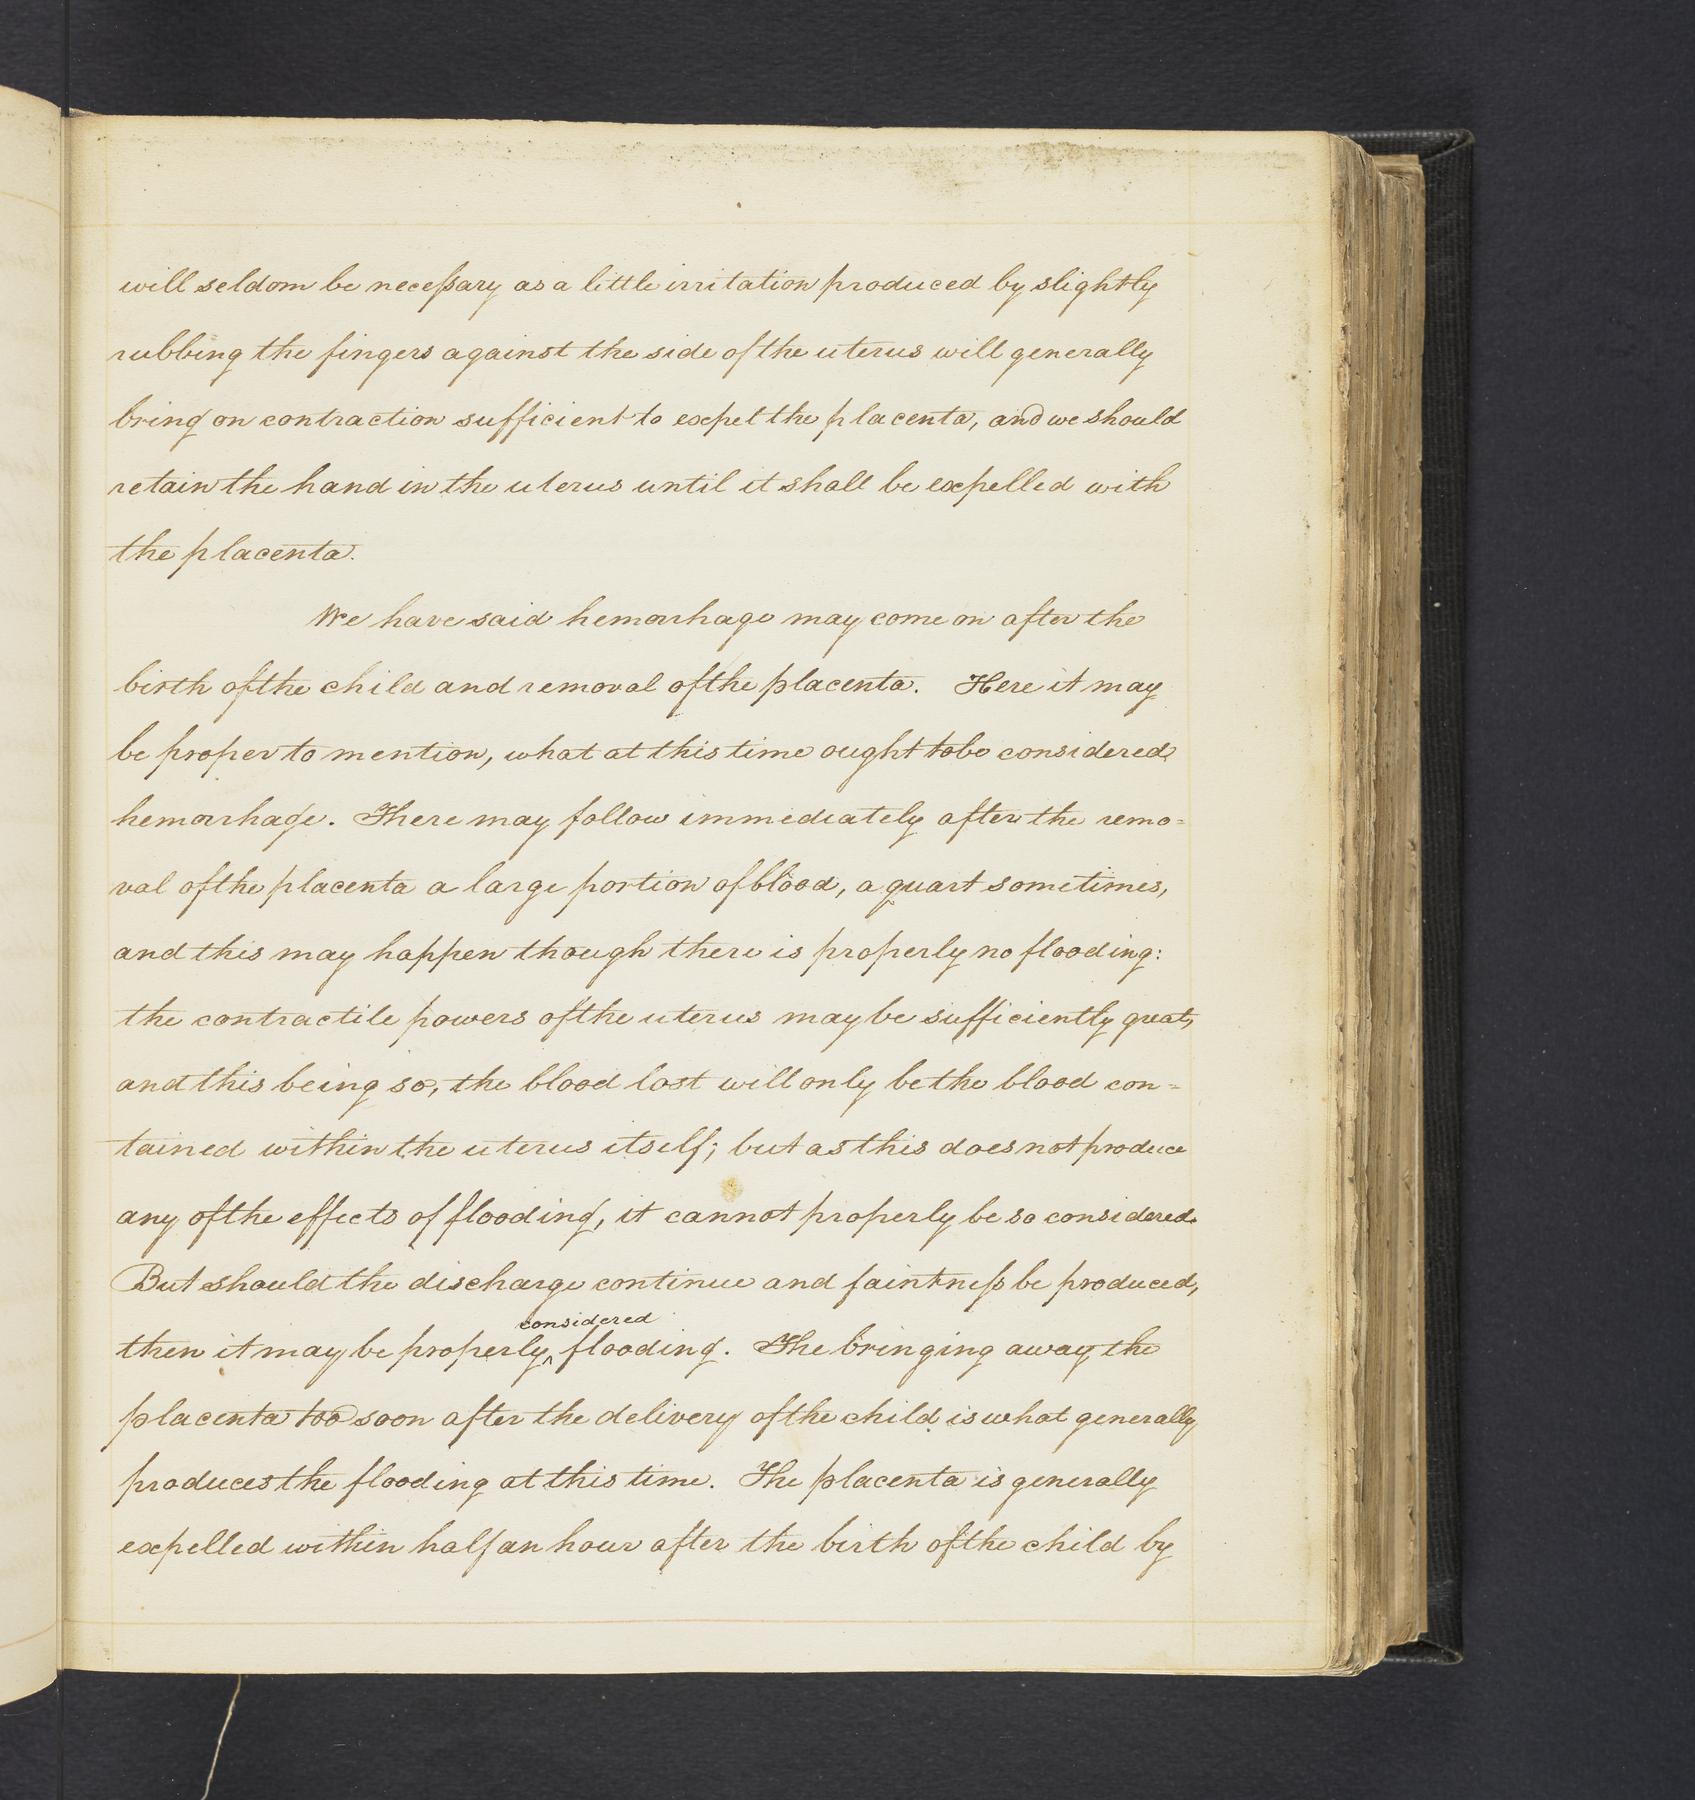 will seldom be necessary as a little irritation produced by slightly
rubbing the fingers against the side of the uterus will generally
bring on contraction sufficient to expel the placenta, and we should
retain the hand in the uterus until it shall be expelled with
the placenta.
We have said hemorrhage may come on after the
birth of the child and removal of the placenta. Here it may
be proper to mention, what at this time ought to be considered
hemorrhage. There may follow immediately after the remo=
val of the placenta a large portion of blood, a quart sometimes,
and this may happen though there is properly no flooding:
the contractile powers of the uterus may be sufficiently great,
and this being so, the blood lost will only be the blood con=
tained within the uterus itself; but as this does not produce
any of the effects of flooding, it cannot properly be so considered.
But should the discharge continue and faintness be produced,
considered
then it may be properly ^ flooding. The bringing away the
placenta too soon after the delivery of the child is what generally
produces the flooding at this time. The placenta is generally
expelled within half an hour after the birth of the child by